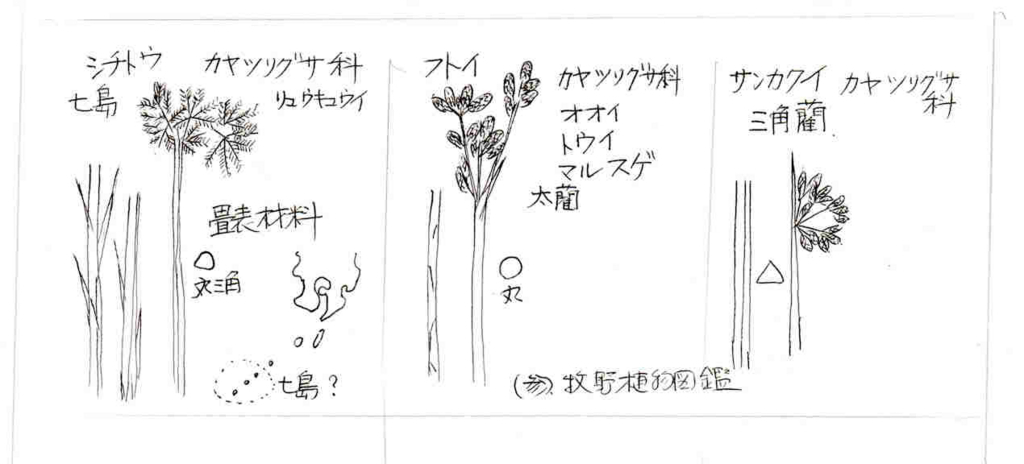 シチトウ
七島
カヤツリグサ科
リュウキュウイ
畳表材料
丸三角
七島?
フトイ
カヤツリグサ科
オオイ
トウイ
マルスゲ
太藺
丸
サンカクイ
三角藺
カヤツリグサ
科
(参)牧野植物図鑑